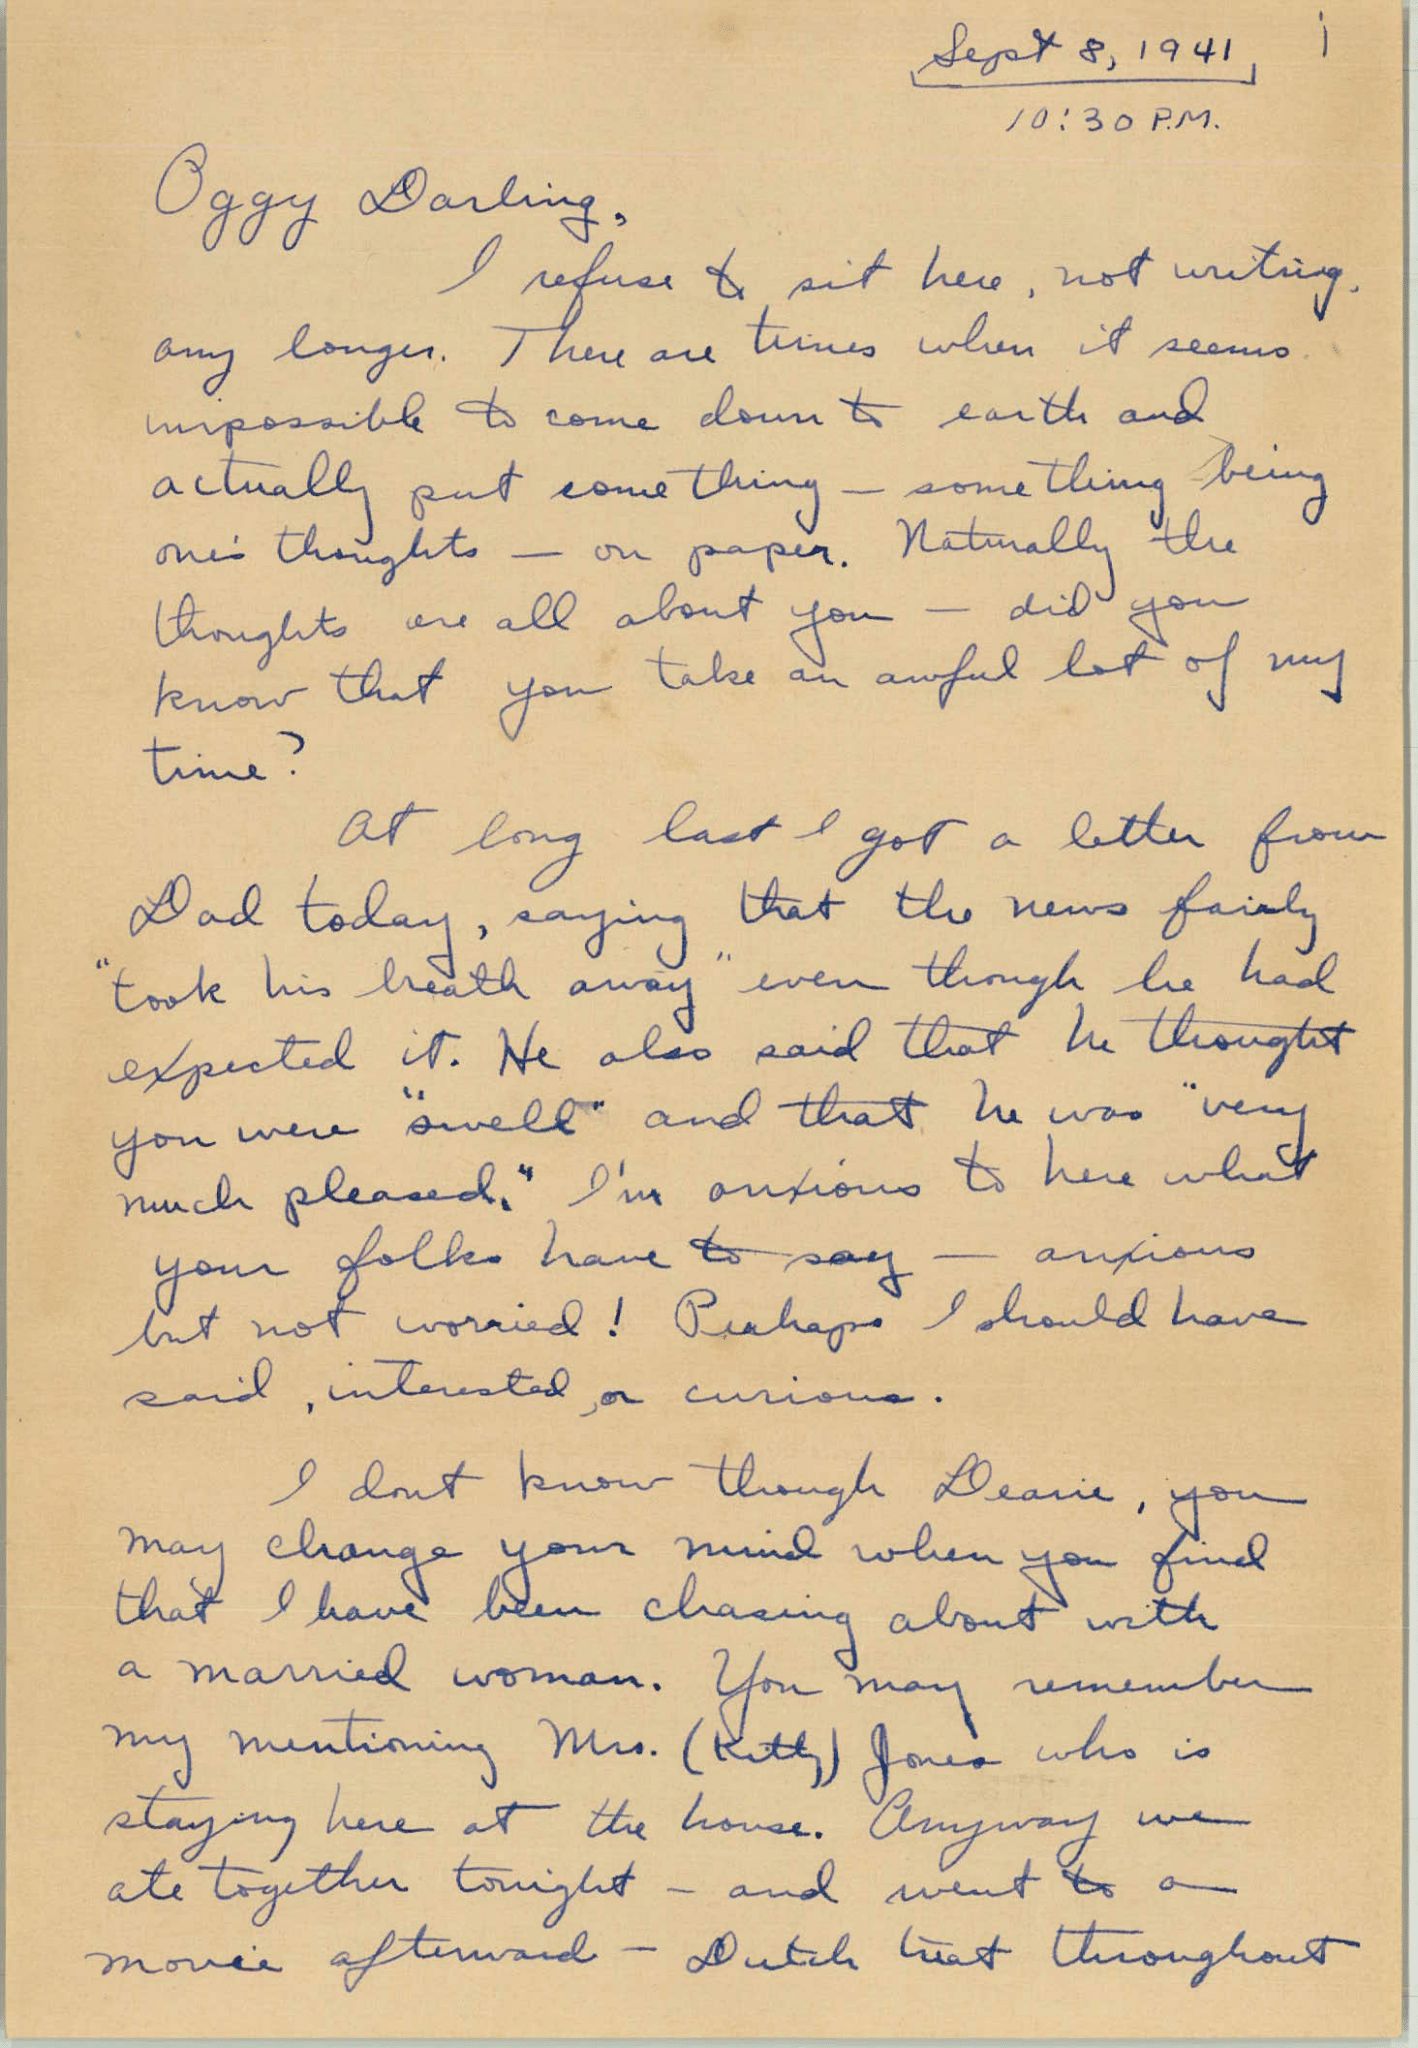 Sept 8, 1941 1
10:30 P.M.
Oggy Darling,
I refuse to sit here, not writing,
any longer. There are times when it seems
impossible to come down to earth and
actually put something — something being
one's thoughts — on paper. Naturally the
thoughts are all about you — did you
know that you take an awful lot of my
time?
At long last I got a letter from
Dad today, saying that the news fairly
"took his breath away" even though he had
expected it. He also said that he thought
you were "swell" and that he was "very
much pleased." I'm anxious to here what
your folks have to say — anxious
but not worried! Perhaps I should have
said, interested, or curious.
I dont know though Dearie, you
may change your mind when you find
that I have been chasing about with
a married woman. You may remember
my mentioning Mrs. (Kitty) Jones who is
staying here at the house. Anyway we
ate together tonight — and went to a
movie afterward — Dutch treat throughout